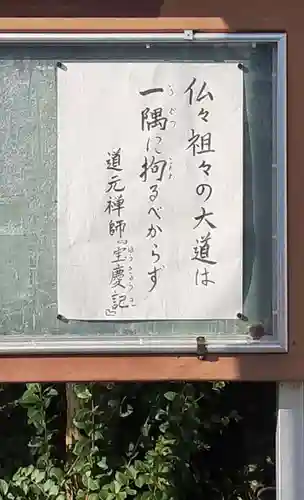 仏々祖々の大道は
一隅に拘るべからず
道元禅師『宝慶記』